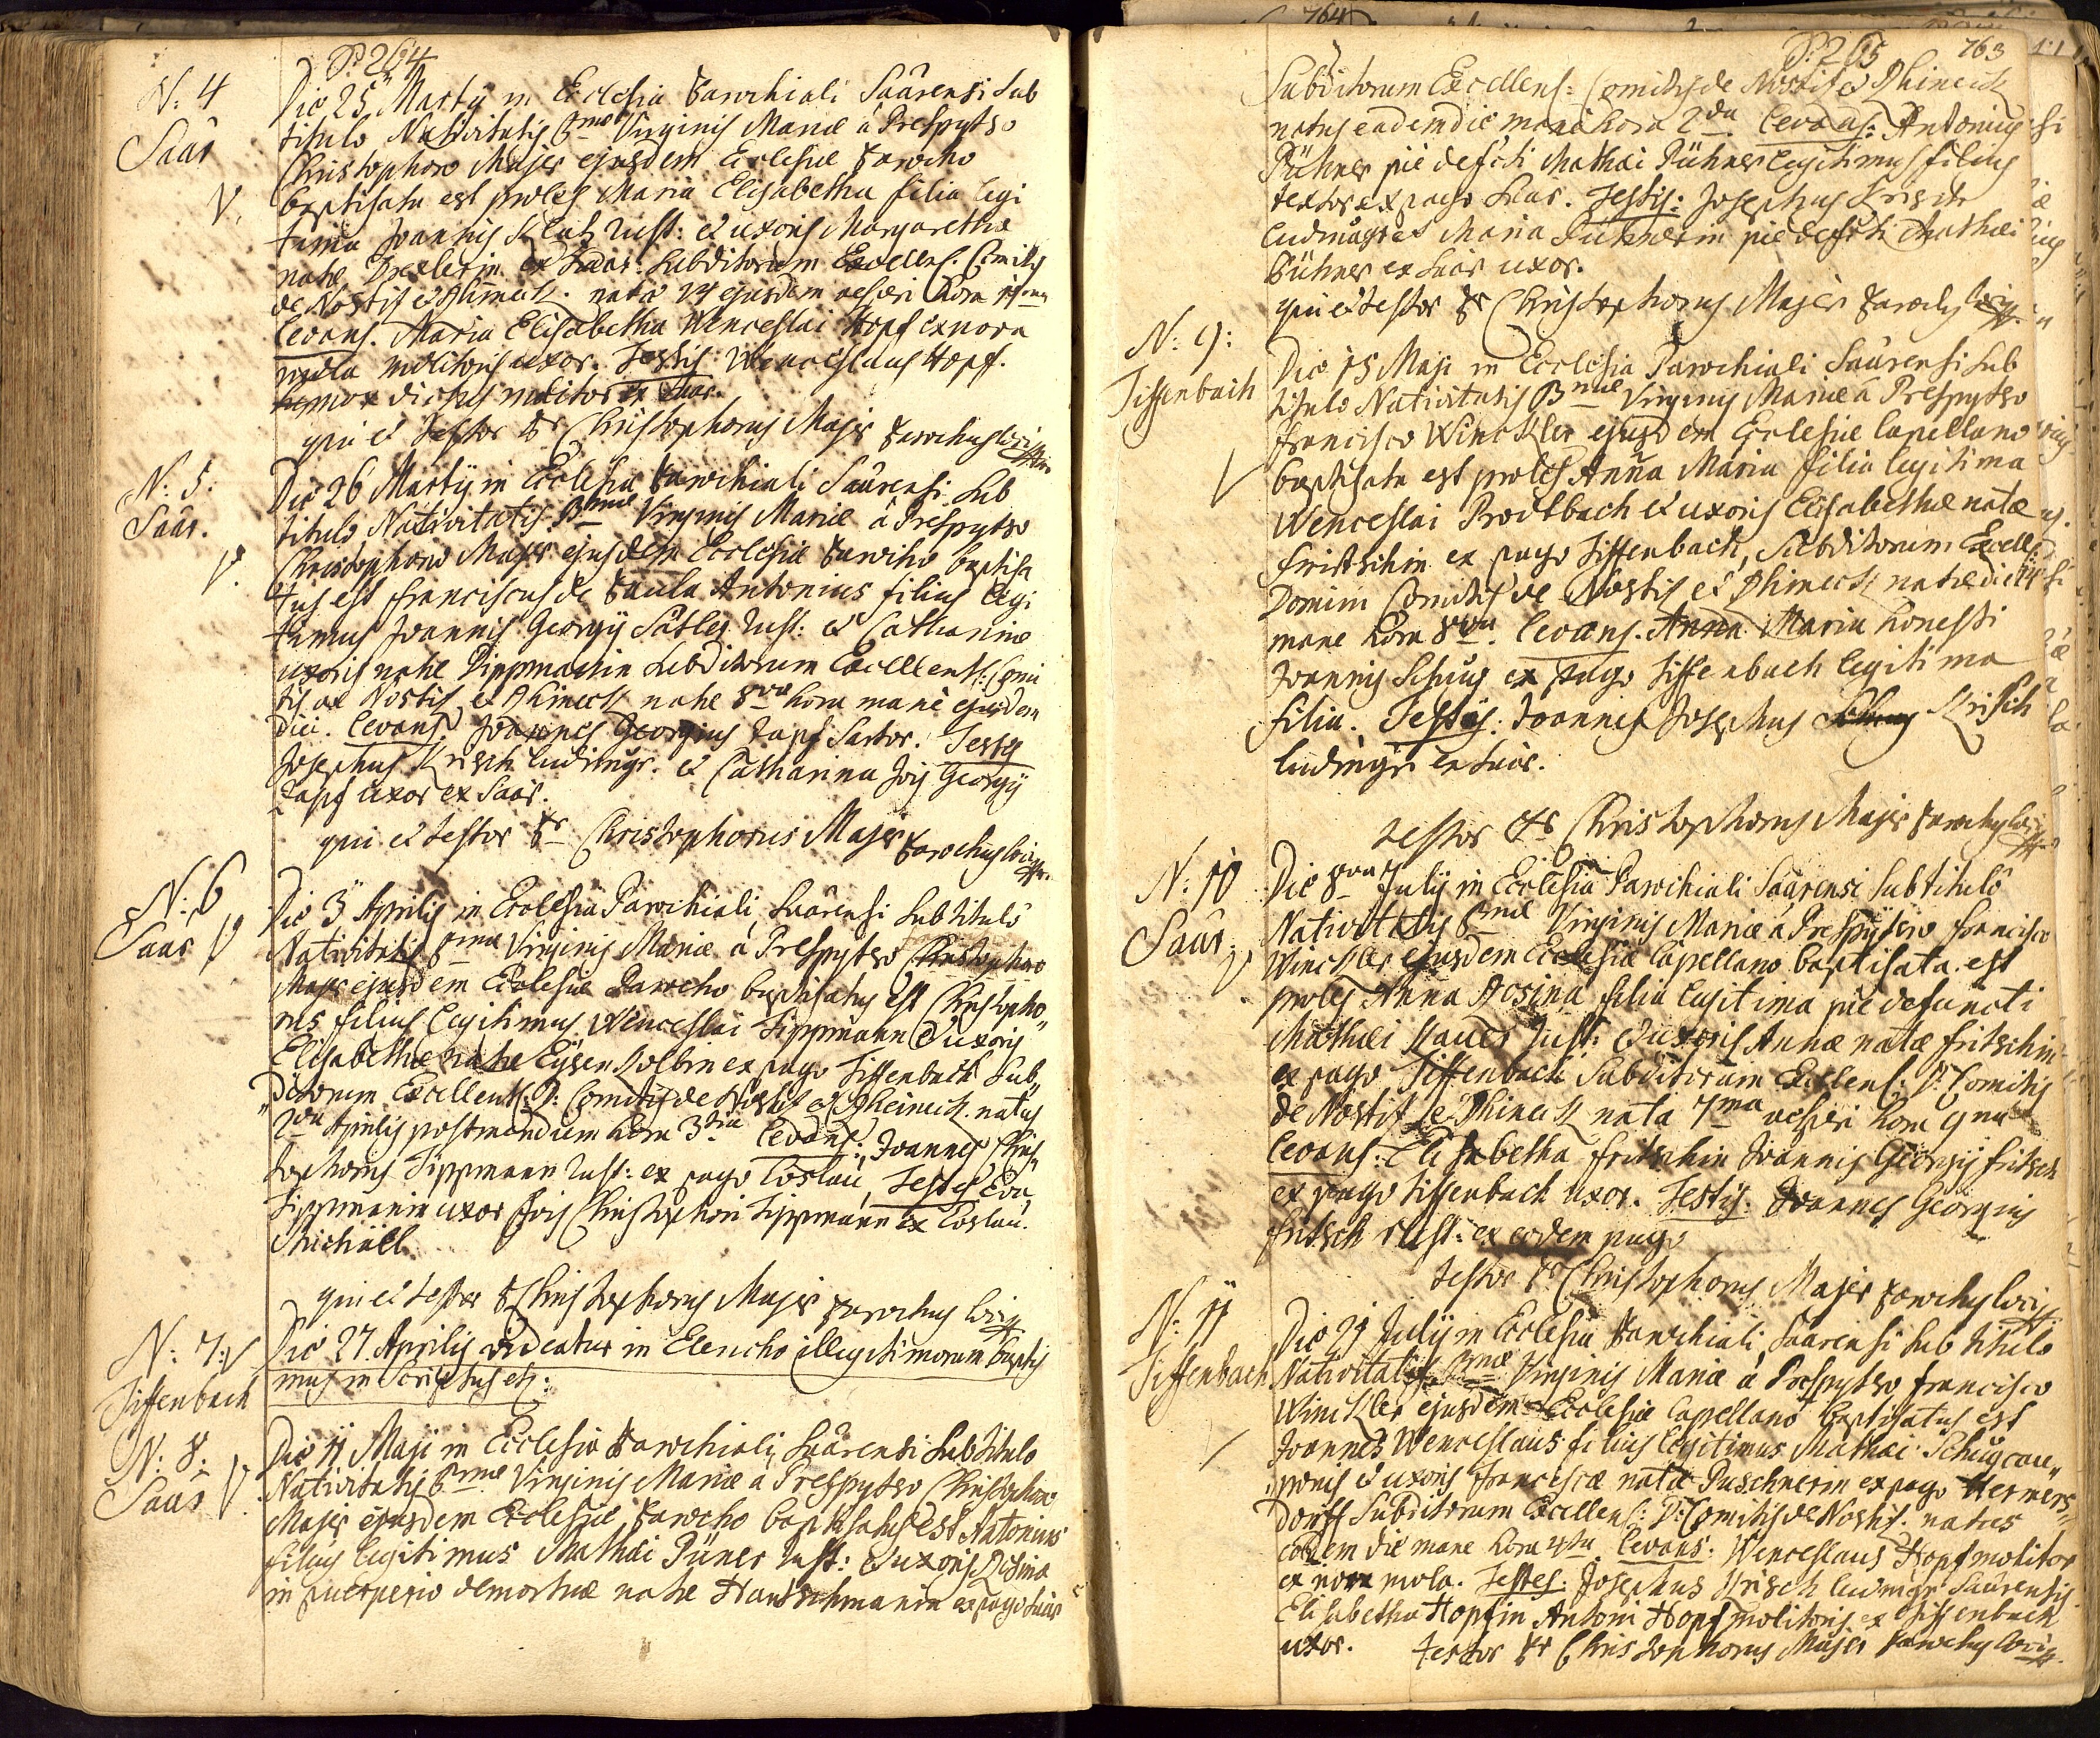 P. 264
N: 4
Saar
V.
Die 25 Martÿ in Ecclesia Parochiali Saarensi sub
titulo Nativitatis Bmae Virginis Mariae â Presbytero
Christophoro Majer ejusdem Ecclesiae Parocho
baptisata est proles Maria Elisabetha filia legi
tima Joannis rust: et uxoris Margarethae
natae Drexlerin ex Saar: Subditorum Excellens. Comitis
de Nostitz et Rhineck. nata 24 ejusdem vesperi hora
Levans. Maria Elisabetha Wenceslai Hopf ex nova
mola molitoris uxor. Testis: Wenceslaus Hopf.
mox dictus molitor ex Saar.
qui et testor Pr Christophorus Majer Parochus loci
N: 5.
Saar.
V.
Die 26 Martÿ in Ecclesia Parochiali Saarensi sub
titulo Nativitatis Bmae Virginis Mariae â Presbytero
Christophoro Majer ejusdem Ecclesiae Parocho baptisa
tus est Franciscus de Paula Antonius filius legi
timus Joannis Georgÿ Sátler rust: et Catharinae
uxoris natae Dippmanin Subditorum Excellents: Comi
tis de Nostitz et Rhineck natae 8va hora mane ejusdem
diei. Levans. Joannes Georgius Zapf Sartor. Testes
Josephus Krisch ludimgr. et Catharina Jois Georgÿ
Zapf uxor ex Saar.
qui et testor Pr Christophorus Majer Parochus loci
N: 6
Saar V
Die 3 Aprilis in Ecclesia Parochiali Saarensi sub titulo
Nativitatis Bmae Virginis Mariae â Presbytero Christophoro
Majer ejusdem Ecclesiae Parocho baptisatus est Christopho„
rus filius legitimus Wenceslai Tippmann et uxoris
Elisabethae natae Eÿsenkolbin ex pago Tiffenbach Sub„
„ditorum Excellents: D: Comitis de Nostitz et Rheineck. natus
2da Aprilis post meridiem hora 3tia Levans: Joannes Chris„
tophorus Tippmann rust: ex pago Coslau, Testes Eva
Tippmanin uxor Jois Christophori Tippmann ex Coslau.
Michäell
qui et testor P Christophorus Majer Parochus loci
N: 7: V
Tiffenbach
Die 27. Aprilis videatur in Elencho illegitimorum baptis
mus inscriptus etz:
N: 8:
Saar V
Die 11 Maji in Ecclesia Parochiali Saarensi sub titulo
Nativitatis Bmae Virginis Mariae â Presbytero Christophoro
Majer ejusdem Ecclesiae Parocho baptisatus est Antonius
filius legitimus Mathaei Püner rust: et uxoris Rosinae
in puerperio demortuae natae Hantschmanin ex pago Saar
764
P. 265
763
Subditorum Excellens: Comitis de Nostitz et Rhineck
natus eadem die mane hora 2da. Levans: Antonius
Pühner pie defcti Mathaei Pühner legitimus filius
textor ex pago Saar. Testis: Josephus Krisch
ludimagr et Maria Pühnerin pie defcti Mathaei
Bühner ex Saar uxor.
qui et testor Pr Christophorus Majer Parochus loci
N: 9:
Tiffenbach
V
Die 15 Maji in Ecclesia Parochiali Saarensi sub
titulo Nativitatis Bmae Virginis Mariae â Presbytero
Francisco Winckler ejusdem Ecclesiae Capellano
baptisata est proles Anna Maria filia legitima
Wenceslai Brodtbach et uxoris Elisabethae natae
Fritschin ex pago Tiffenbach, Subditorum Excell:
Domini Comitis de Nostitz et Rhineck natae die 14
mane hora 8va. Levans. Anna Maria honesti
Joannis Schug ex pago Tiffenbach legitima
filia. Testis: Joannes Josephus Krisch
ludimgr ex Saar.
testor Pr Christophorus Majer Parochus loci
N: 10
Saar.
V
Die 8va Julÿ in Ecclesia Parochiali Saarensi sub titulo
Nativitatis Bmae Virginis Mariae â Presbÿtero Francisco
Winckler ejusdem Ecclesiae Capellano baptisata est
proles Anna Rosina filia legitima pie defuncti
Mathaei Hauer rust: et uxoris Annae natae Fritschin
ex pago Tiffenbach Subditorum Excellens: D: Comitis
de Nostitz et Rhineck nata 7ma vesperi hora 9na
Levans: Elisabetha Fritschin Joannis Georgÿ Fritsch
ex pago Tiffenbach uxor. Testis: Joannes Georgius
Fritsch rust: ex eodem pago
testor Pr Christophorus Majer Parochus loci
N: 11
Tiffenbach
Die 29 Julÿ in Ecclesia Parochiali Saarensi sub titulo
Nativitatis Bmae Virginis Mariae â Presbytero Francisco
Winckler ejusdem Ecclesiae Capellano baptisatus est
Joannes Wenceslaus filius legitimus Mathaei Schug cau„
„ponis et uxoris Franciscae natae Puschnerin ex pago Hermers„
dorff Subditorum Excellens: D: Comitis de Nostitz. natus
eodem die mane hora 4ta. Levans: Wenceslaus Hopf molitor
ex nova mola. Testes: Josephus Krisch ludimgr Saarensis
Elisabetha Hopfin Antoni Hopf molitoris ex Tiffenbach
uxor. testor Pr Christophorus Majer Parochus loci